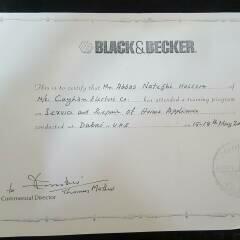 BLACK&BECKER
This is to certify that Mr. Abbas Nateghi Hossein of
M/s. Cayhan Electric Co. has attended a training program
Service and Repair of Home Appliance
conducted at Dubai - U.A.E 15-18th May
Thomas Mathew
Commercial Director